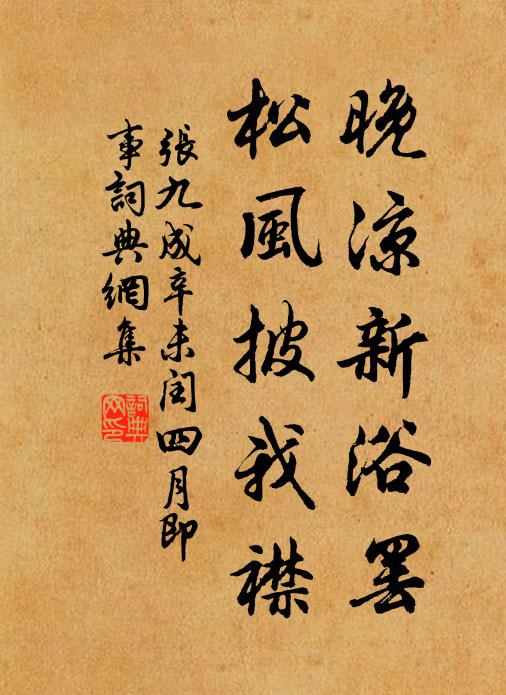 晚涼新浴罢
松風披我襟
張九成辛未閏四月即
事詞典網集
詞典
网印